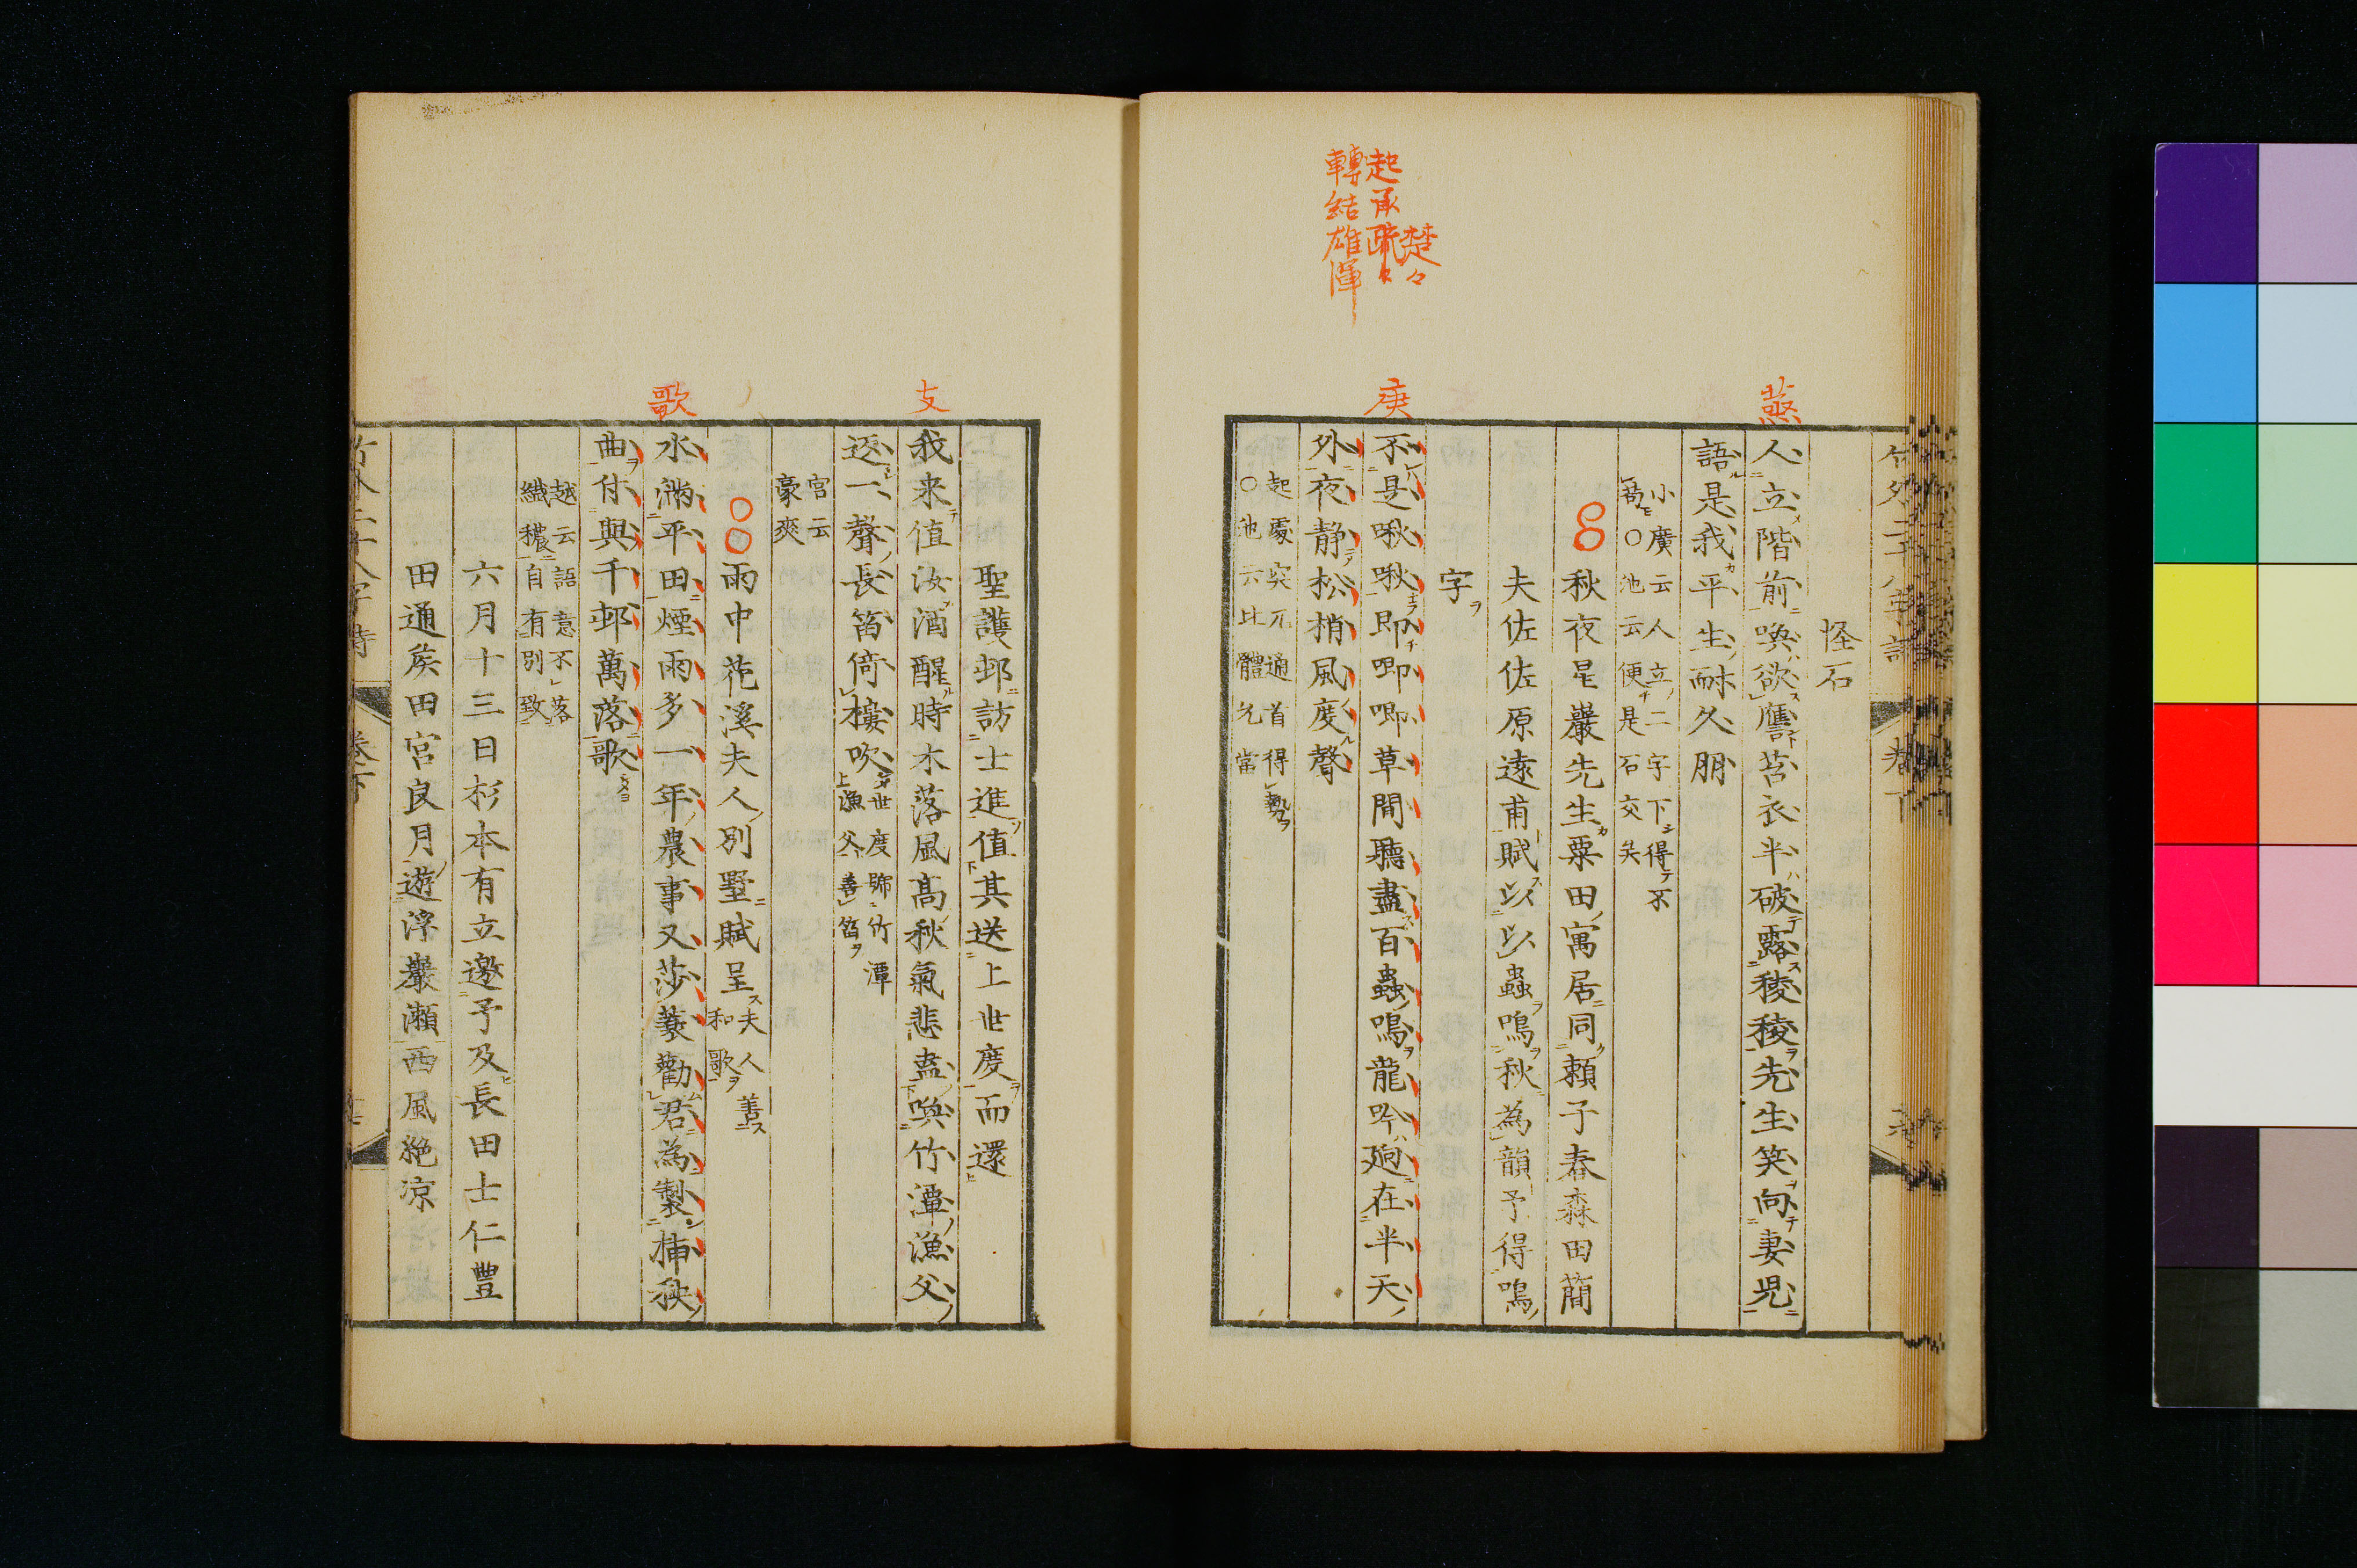 燕
庚
起承疏々
楚々
轉結雄渾
怪石
人立階前喚欲譍苔衣半破露稜稜先生笑向妻児
語是我平生耐久朋
小廣云人立二字下得不
苟〇池云便是石交矣
秋夜星巖先生粟田寓居同賴子春森田簡
夫佐佐原遠甫賦以以蟲鳴秋為韻予得鳴
字
不是啾啾即唧唧草間聽盡百蟲鳴龍吟迥在半天
外夜静松梢風度聲
起處突兀通首得勢
〇池云比體允當
支
歌
聖護邨訪士進值其送上世度而還
我来值汝酒醒時木落風高秋氣悲盍喚竹潭漁父
返一聲長笛倚樓吹
世度號竹潭
上漁父善笛
宮云
豪爽
雨中花溪夫人別墅賦呈
夫人善
和歌
水滿平田煙雨多一年農事又莎蓑勸君為製插秧
曲付與千邨萬落歌
越云語意不落
纖穠自有別致
六月十三日杉本有立邀予及長田士仁豊
田通矦田宮良月遊浮巖瀬西風絶凉
竹外二十八字詩
卷下